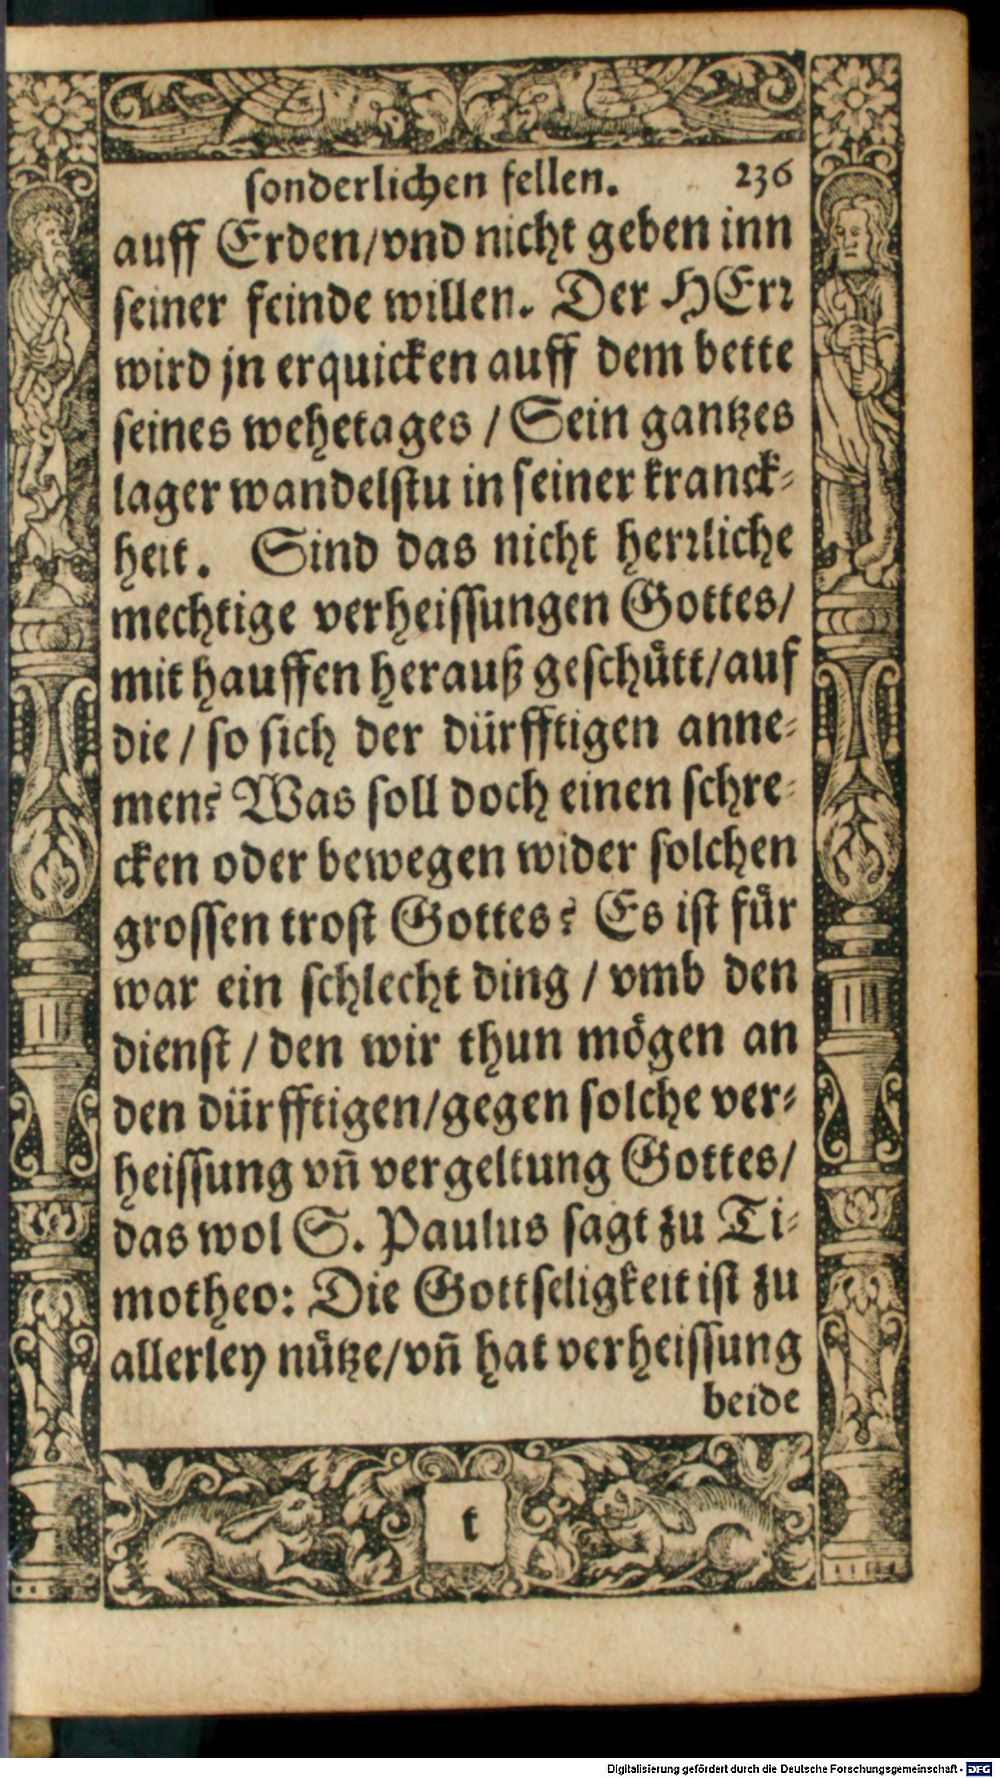 sonderlichen fellen. 236
auff Erden/vnd nicht geben inn
seiner feinde willen. Der HErr
wird jn erquicken auff dem bette
seines wehetages / Sein gantzes
lager wandelstu in seiner kranck-
heit. Sind das nicht herrliche
mechtige verheissungen Gottes/
mit hauffen herauß geschütt/auf
die / so sich der dürfftigen anne-
men? Was soll doch einen schre-
cken oder bewegen wider solchen
grossen trost Gottes? Es ist für
war ein schlecht ding / vmb den
dienst / den wir thun mögen an
den dürfftigen/gegen solche ver-
heissung vñ vergeltung Gottes/
das wol S. Paulus sagt zu Ti-
motheo: Die Gottseligkeit ist zu
allerley nütze/vñ hat verheissung
beide
t
Digitalisierung gefördert durch die Deutsche Forschungsgemeinschaft - DFG